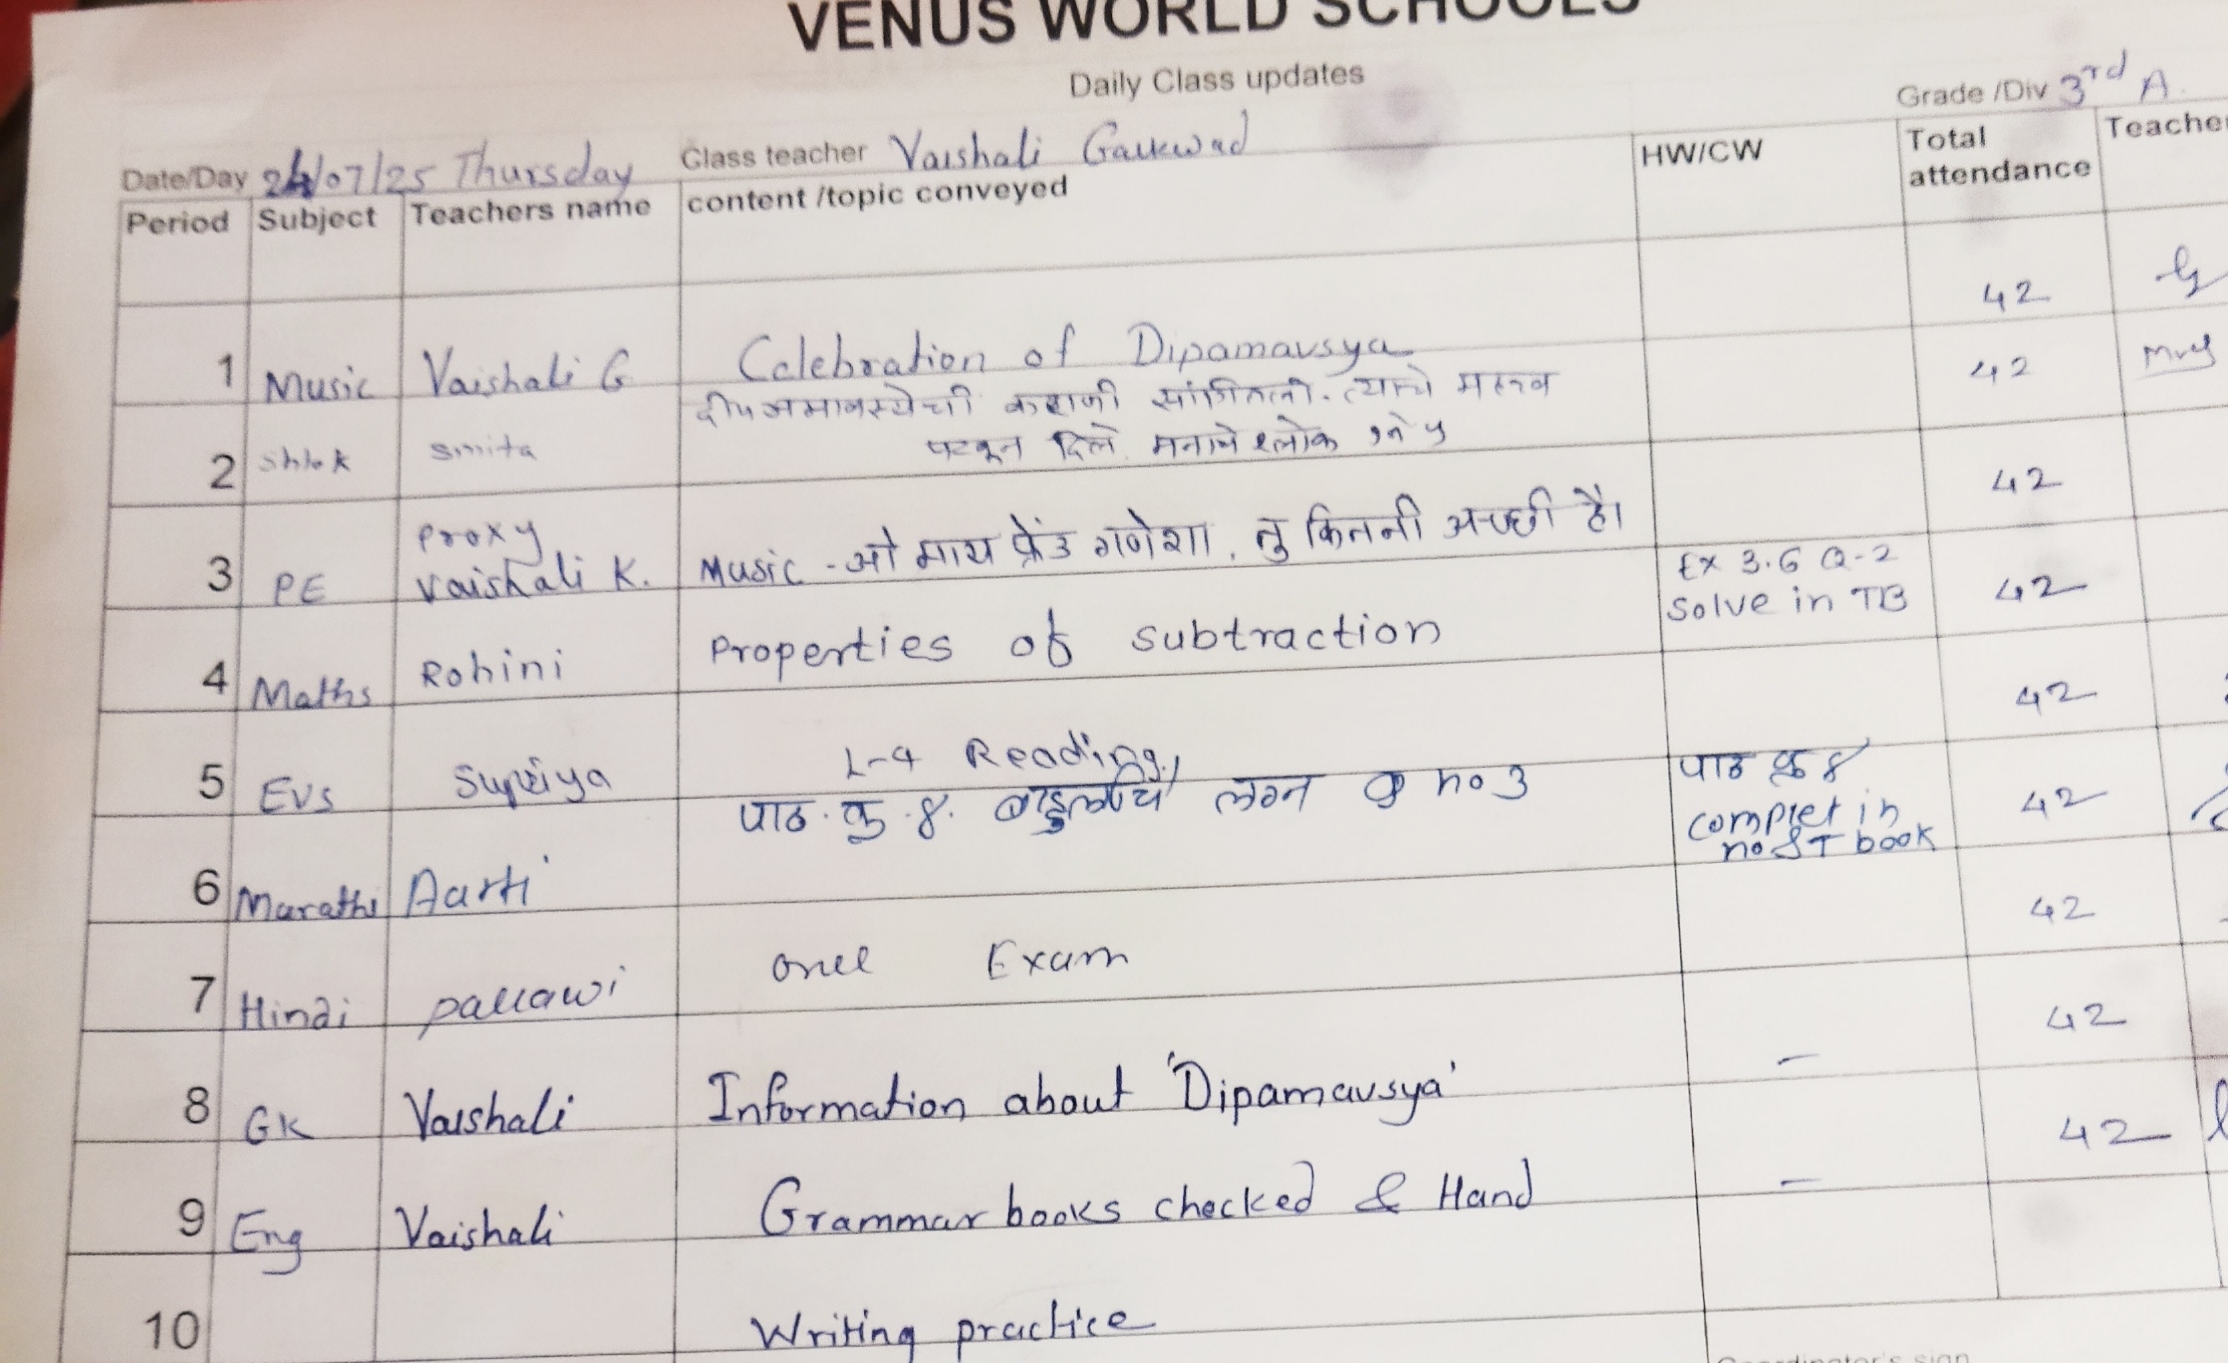 VENUS WORLD SCHOOLS
Daily Class updates
Grade /Div 3rd A
Date/Day 24/07/25 Thursday Class teacher Vaishali Gaikwad
Period Subject Teachers name content /topic conveyed HW/CW Total attendance Teacher
42
1 Music Vaishali G Celebration of Dipamavsya 42
दीपअमावस्येची कहाणी सांगितली. त्याचे महत्व
2 Shlok Smita पटवून दिले. मनाचे श्लोक १ ते ५ 42
3 PE Proxy Vaishali K. Music - ओ माय फ्रेंड गणेशा, तु कितनी अच्छी है।
Ex 3.6 Q-2
solve in TB 42
4 Maths Rohini Properties of subtraction 42
5 EVS Supriya L-4 Reading
पाठ क्र. ४. लग्न no 3
पाठ क्र ४
complet in
no & T book 42
6 Marathi Aarti 42
7 Hindi pallawi Exam 42
8 GK Vaishali Information about 'Dipamavsya' – 42
9 Eng Vaishali Grammar books checked & Hand –
10 Writing practice
Coordinator's sign